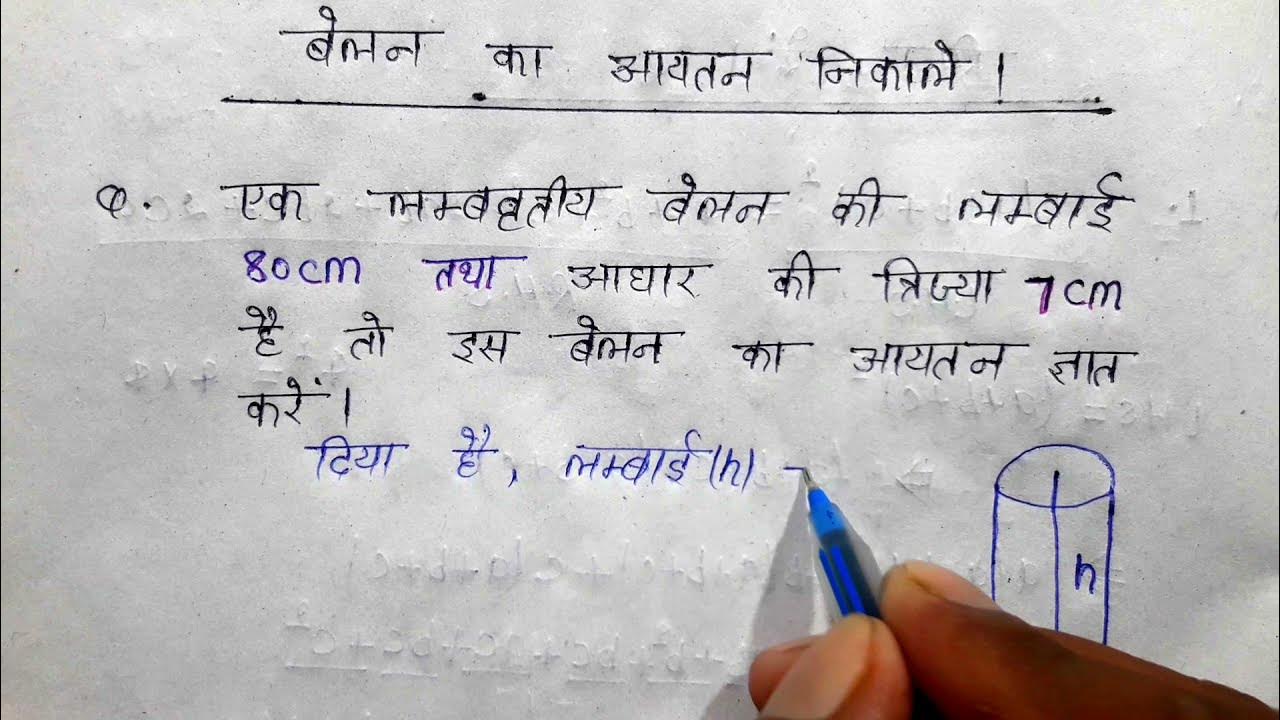 बेलन का आयतन निकाले।
Q. एक लम्बवृतीय बेलन की लम्बाई
80cm तथा आधार की त्रिज्या 7cm
है तो इस बेलन का आयतन ज्ञात
करें।
दिया है, लम्बाई(h) -
h